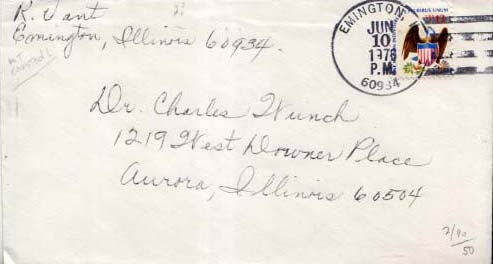 R. Vant
Emington, Illinois 60934.
EMINGTON,
JUN
10
1976
P.M.
60934
E PLURIBUS UNUM
13¢
Dr. Charles Wunch
1219 West Downer Place
Aurora, Illinois 60504
2/90
50